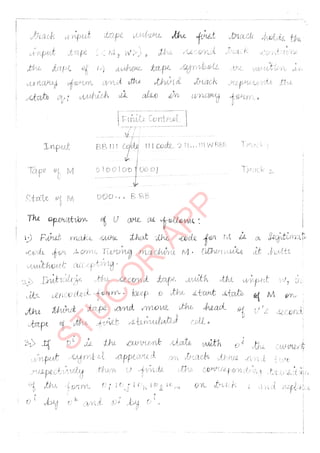 track input tape where the first track holds the
input tape (<M, W>), the second track contains
the tape of M where tape symbols are written in
unary form and the third track represents the
state qi which is also in unary form.
Finite Control
Input BB 111 code 111 code 211...111 W BBB Track 1
Tape of M 01001001 0001 Track 2
State of M 000... B.BB
The operation of U are as follows:
1) First make sure that the code for M is a legitimate
code for some Turing machine M. Otherwise it halts
without accepting.
2) Initialize the second tape with the input W, in
its encoded form. Keep 0 the start state of M on
the third tape and move the head of U's second
tape of the first simulated cell.
3) If 0i is the current state with 0j the current
input symbol appeared on track three and two
respectively then U finds the corresponding transition
of the form 0i 1 0j 1 0k 1 0l 1 0m on track 1 and replace
0i by 0k and 0j by 0l.
STUCOR APP